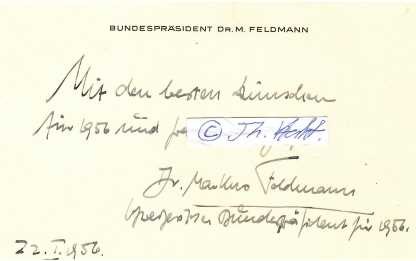 BUNDESPRÄSIDENT DR. M. FELDMANN
Mit den besten Wünschen
für 1956 und
© Th. Hecht.
Dr. Markus Feldmann
Bundespräsident für 1956.
22. I. 1956.